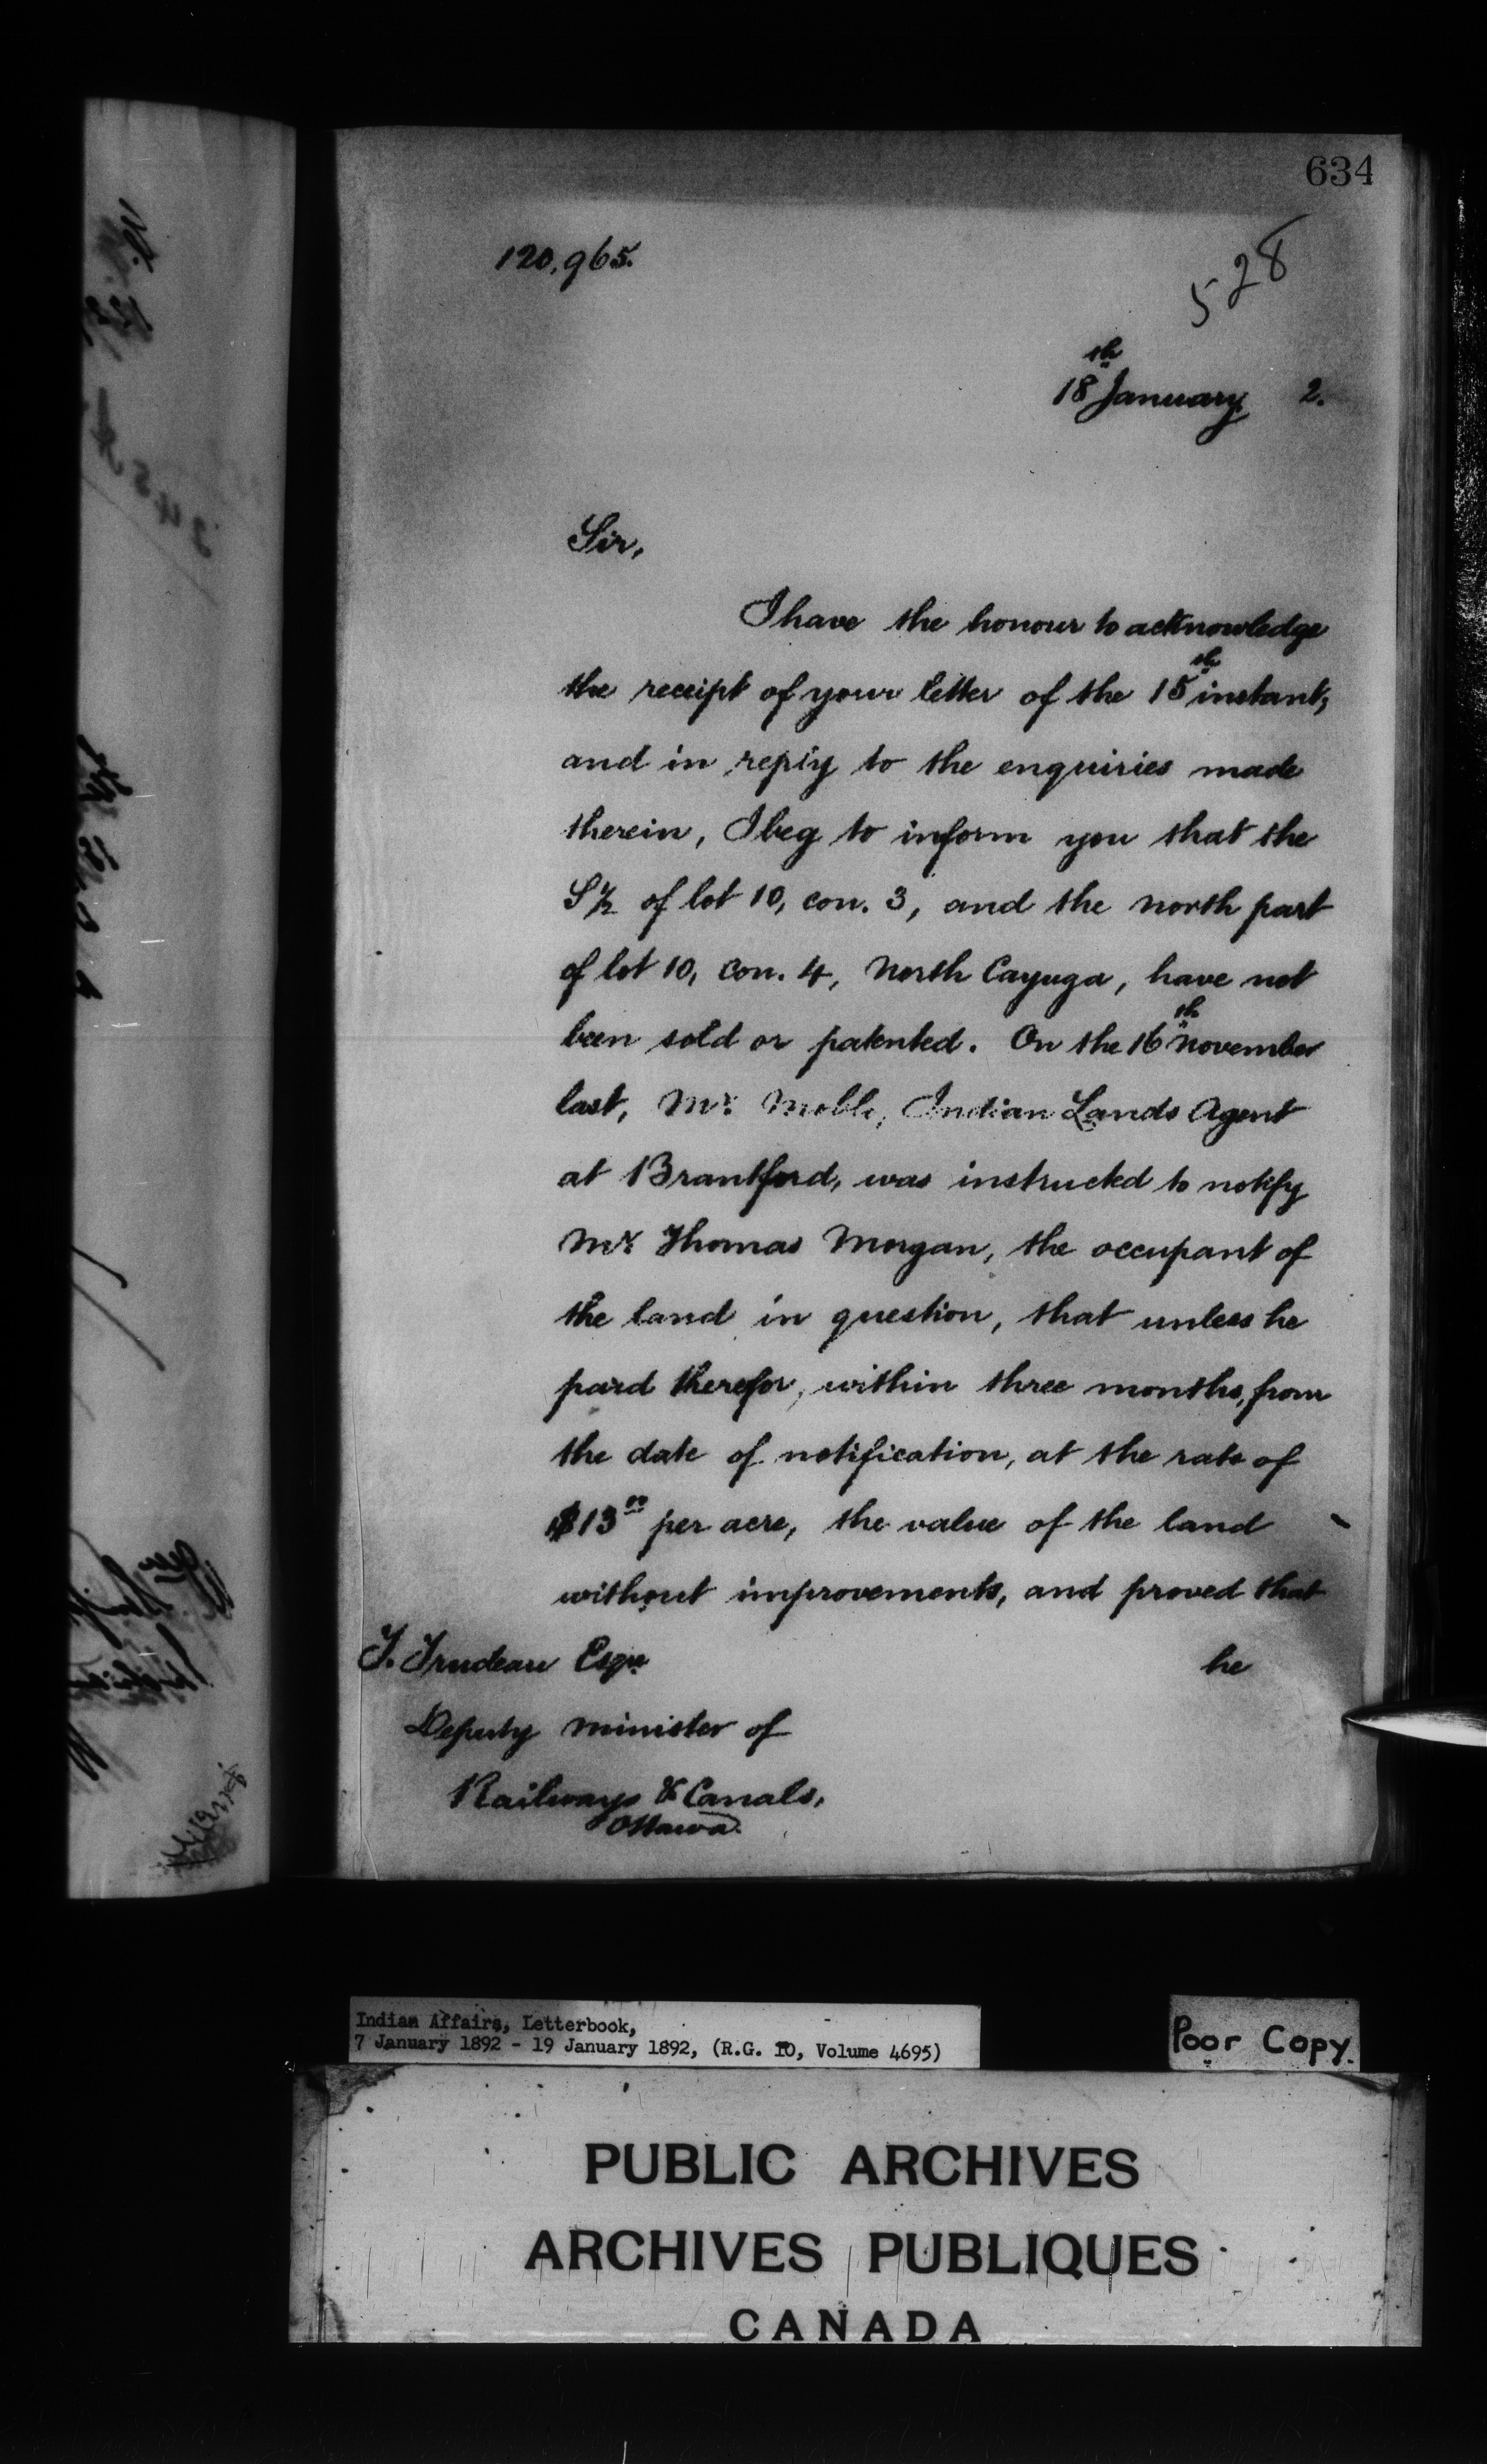 634
120,965.
528
18th January 2.
Sir,
I have the honour to acknowledge
the receipt of your letter of the 15th instant,
and in reply to the enquiries made
therein, I beg to inform you that the
S½ of lot 10, con. 3, and the north part
of lot 10, con. 4, North Cayuga, have not
been sold or patented. On the 16th November
last, Mr. Indian Lands Agent
at Brantford, was instructed to notify
Mr. Thomas Morgan, the occupant of
the land in question, that unless he
paid therefor, within three months, from
the date of notification, at the rate of
$13.00 per acre, the value of the land
without improvements, and proved that
he
T. Trudeau Esqre
Deputy Minister of
Railways & Canals,
Ottawa.
Indian Affairs, Letterbook,
7 January 1892 - 19 January 1892, (R.G. 10, Volume 4695)
Poor Copy.
PUBLIC ARCHIVES
ARCHIVES PUBLIQUES
CANADA